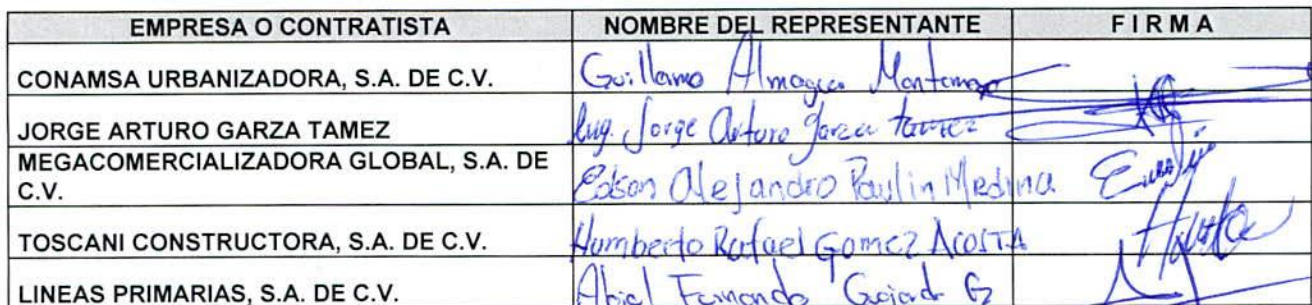 EMPRESA O CONTRATISTA NOMBRE DEL REPRESENTANTE FIRMA
CONAMSA URBANIZADORA, S.A. DE C.V. Guillermo Almaguer Montemayor
JORGE ARTURO GARZA TAMEZ Ing. Jorge Arturo Garza Tamez
MEGACOMERCIALIZADORA GLOBAL, S.A. DE
C.V. Edson Alejandro Paulin Medina
TOSCANI CONSTRUCTORA, S.A. DE C.V. Humberto Rafael Gomez Acosta
LINEAS PRIMARIAS, S.A. DE C.V. Abiel Fernando G